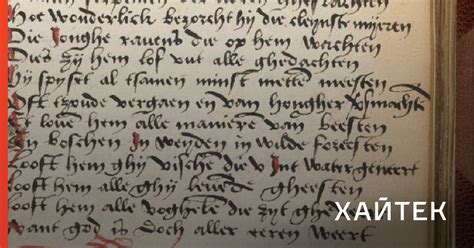 Hoe wonderlick bezorcht hij die cleynste mijeren
Die Jonghe ravens die op hem wachten
Dies zij hem lof vut alle ghedachten
Hij spijset al tsamen minst mette meesten
Oft tzoude vergaen en van hongher
Et loven hem alle maniere van beesten
In bosschen In weyden in wilde foreesten
Looft hem ghij vische die v Int water
Looft hem alle ghij levende gheesten
Looft hem alle voghels die zijt
Want god is doch aller eeren weert
ХАЙТЕК